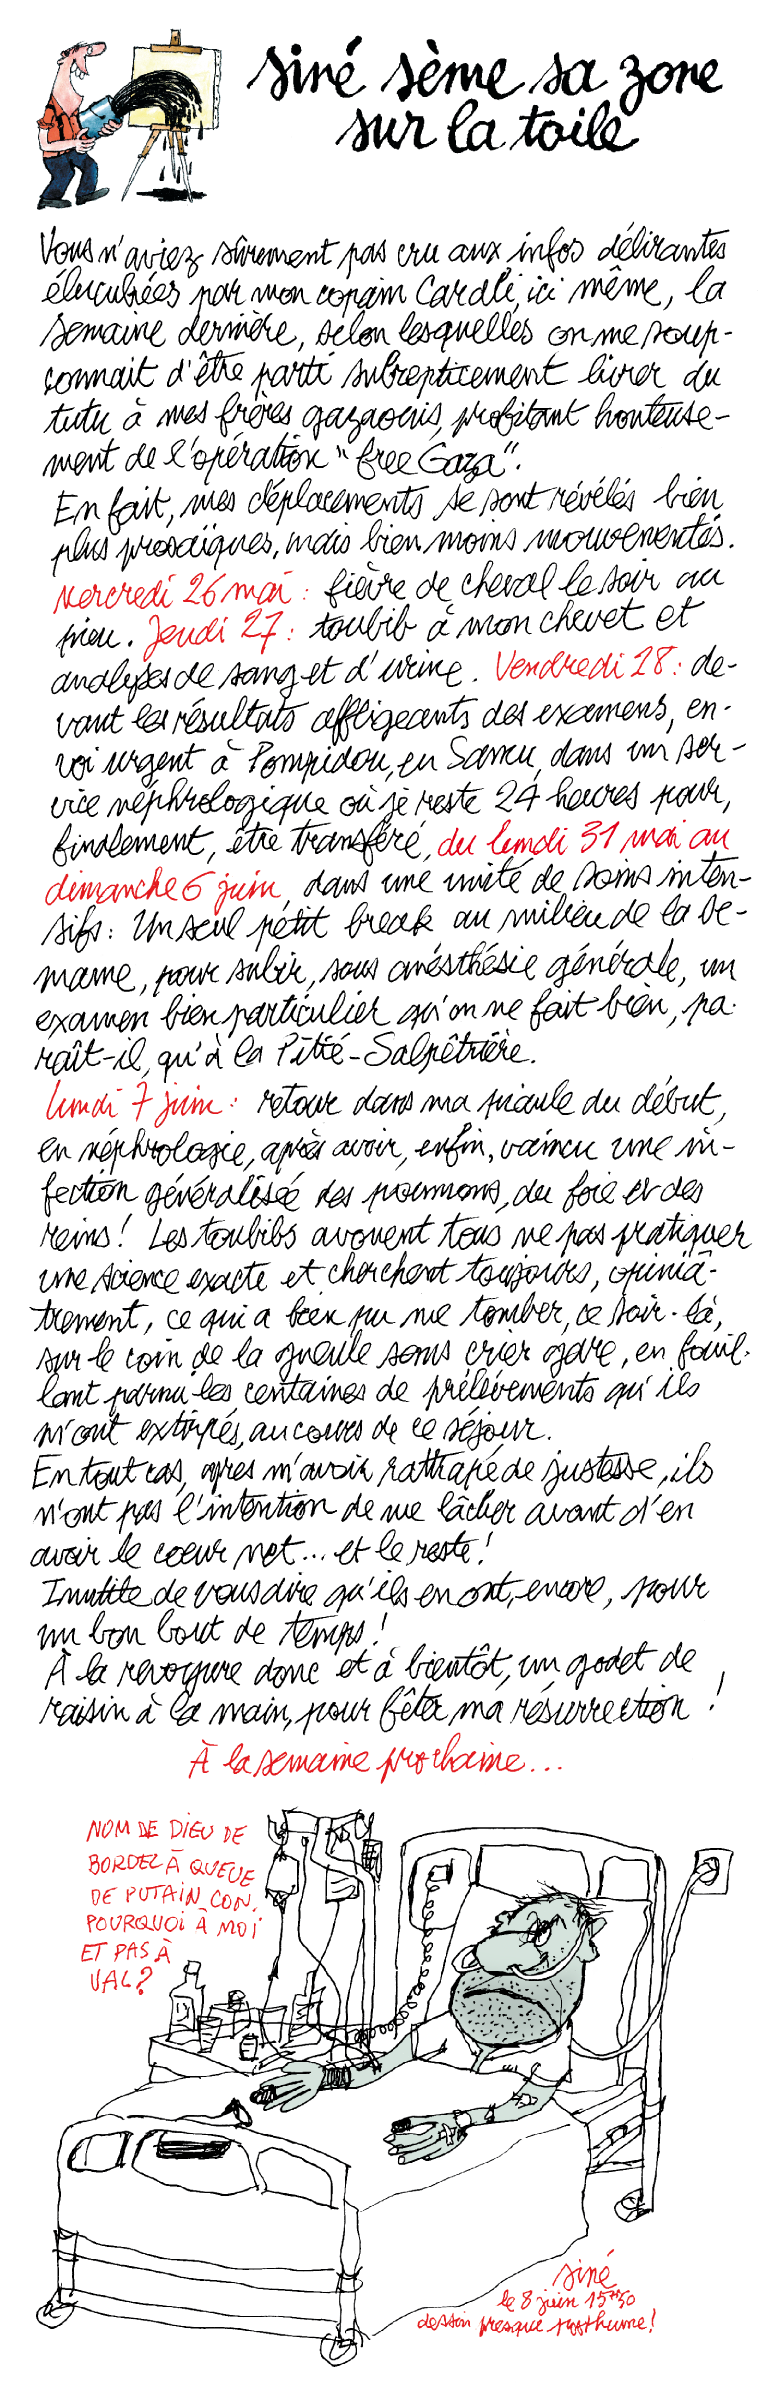 siné sème sa zone
sur la toile
Vous n'aviez sûrement pas cru aux infos délirantes
élucubrées par mon copain Cardli, ici même, la
semaine dernière, selon lesquelles on me soup-
çonnait d'être parti subrepticement livrer du
tutu à mes frères gazaouis, profitant honteuse-
ment de l'opération "free Gaza".
En fait, mes déplacements se sont révélés bien
plus prosaïques, mais bien moins mouvementés.
Mercredi 26 mai : fièvre de cheval le soir au
pieu. Jeudi 27 : toubib à mon chevet et
analyses de sang et d'urine. Vendredi 28 : de-
vant les résultats affligeants des examens, en-
voi urgent à Pompidou, en Samu, dans un ser-
vice néphrologique où je reste 24 heures pour,
finalement, être transféré, du lundi 31 mai au
dimanche 6 juin, dans une unité de soins inten-
sifs : Un seul petit break au milieu de la se-
maine, pour subir, sous anésthésie générale, un
examen bien particulier qu'on ne fait bien, pa-
raît-il, qu'à la Pitié-Salpêtrière.
Lundi 7 juin : retour dans ma piaule du début,
en néphrologie, après avoir, enfin, vaincu une in-
fection généralisée des poumons, du foie et des
reins ! Les toubibs avouent tous ne pas pratiquer
une science exacte et cherchent toujours, opiniâ-
trement, ce qui a bien pu me tomber, ce soir-là,
sur le coin de la gueule sans crier gare, en fouil-
lant parmi les centaines de prélèvements qu'ils
m'ont extirpés, au cours de ce séjour.
En tout cas, après m'avoir rattrapé de justesse, ils
n'ont pas l'intention de me lâcher avant d'en
avoir le coeur net... et le reste !
Inutile de vous dire qu'ils en ont, encore, pour
un bon bout de temps !
À la revoyure donc et à bientôt, un godet de
raisin à la main, pour fêter ma résurrection !
À la semaine prochaine...
NOM DE DIEU DE
BORDEL À QUEUE
DE PUTAIN CON,
POURQUOI À MOI
ET PAS À
VAL ?
siné
le 8 juin 15H30
dessin presque posthume !